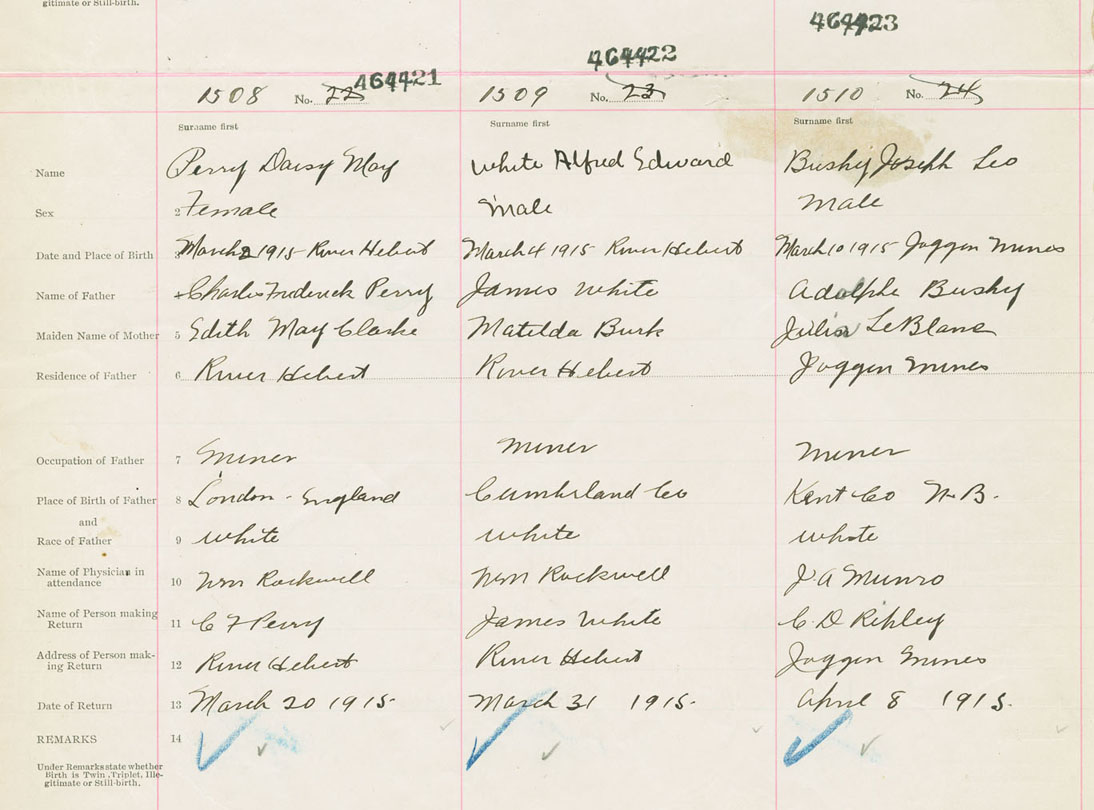 gitimate or Still-birth.
464423
464422
464421
1508 No. 22 1509 No. 23 1510 No. 24
Surname first Surname first Surname first
Name Perry Daisy May White Alfred Edward Bushy Joseph Leo
Sex 2 Female Male Male
Date and Place of Birth 3 March 2 1915 - River Hebert March 4 1915 River Hebert March 10 1915 Joggin Mines
Name of Father Charles Frederick Perry James White Adolphe Bushy
Maiden Name of Mother 5 Edith May Clarke Matilda Burk Julia LeBlanc
Residence of Father 6 River Hebert River Hebert Joggin Mines
Occupation of Father 7 Miner Miner Miner
Place of Birth of Father 8 London - England Cumberland Co Kent Co N.B.
and
Race of Father 9 White White White
Name of Physician in attendance 10 Wm Rockwell Wm Rockwell J A Munro
Name of Person making Return 11 C F Perry James White C. D Ripley
Address of Person mak-ing Return 12 River Hebert River Hebert Joggin Mines
Date of Return 13 March 20 1915. March 31 1915. April 8 1915.
REMARKS 14
Under Remarks state whether
Birth is Twin, Triplet, Ille-
gitimate or Still-birth.